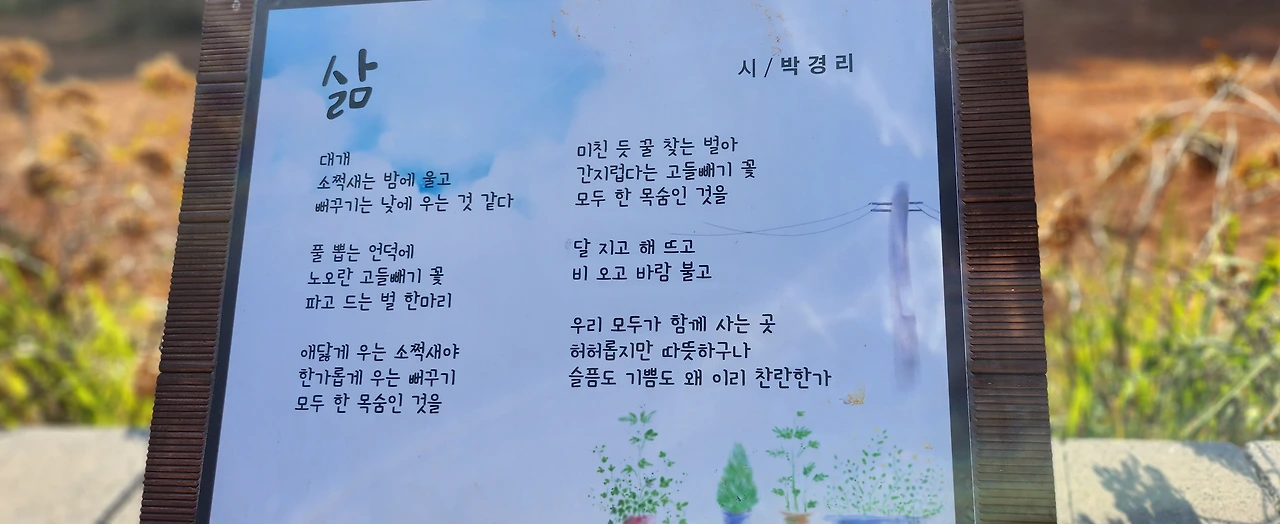 삶
시/박경리
대개
소쩍새는 밤에 울고
뻐꾸기는 낮에 우는 것 같다
풀 뽑는 언덕에
노오란 고들빼기 꽃
파고 드는 벌 한마리
애닲게 우는 소쩍새야
한가롭게 우는 뻐꾸기
모두 한 목숨인 것을
미친 듯 꿀 찾는 벌아
간지럽다는 고들빼기 꽃
모두 한 목숨인 것을
달 지고 해 뜨고
비 오고 바람 불고
우리 모두가 함께 사는 곳
허허롭지만 따뜻하구나
슬픔도 기쁨도 왜 이리 찬란한가